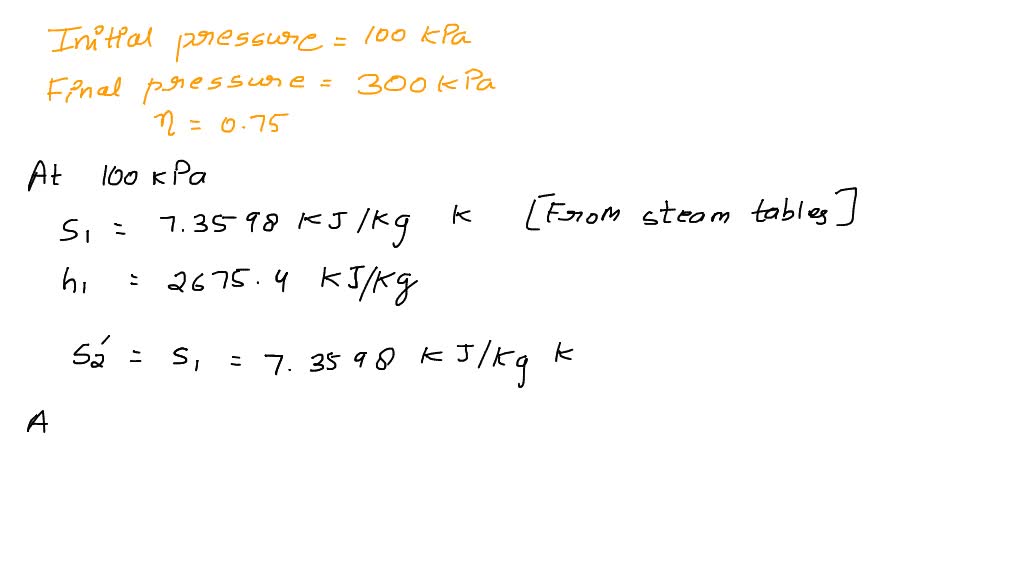 Initial pressure = 100 kPa
Final pressure = 300 kPa
η = 0.75
At 100 kPa
S₁ = 7.3598 KJ/kg K [From steam tables]
h₁ = 2675.4 KJ/kg
S₂′ = S₁ = 7.3598 KJ/kg K
A